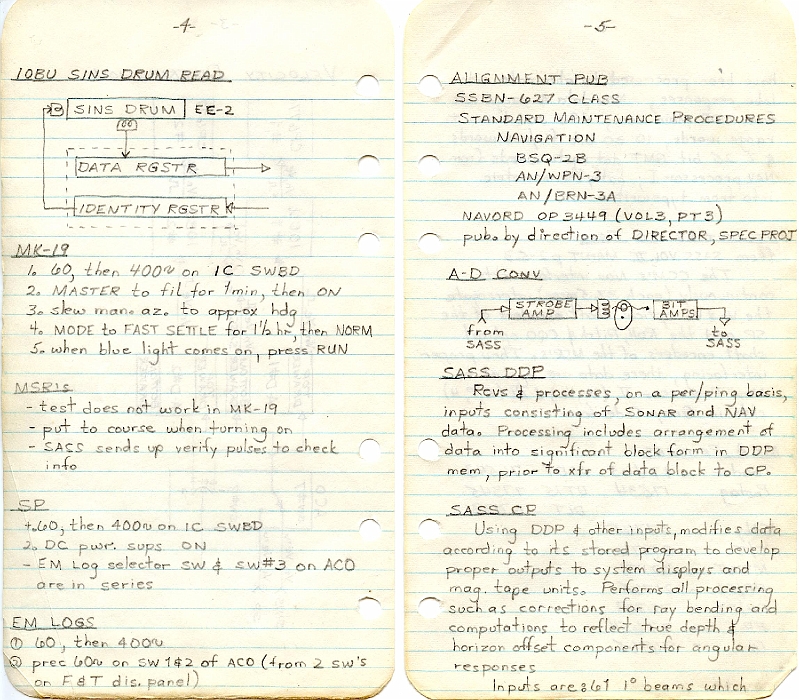 -4-
IOBU SINS DRUM READ
SINS DRUM EE-2
DATA RGSTR
IDENTITY RGSTR
MK-19
1. 60, then 400~ on IC SWBD
2. MASTER to fil for 1min, then ON
3. slew man. az. to approx hdg
4. MODE to FAST SETTLE for 1½ hr, then NORM
5. when blue light comes on, press RUN
MSR's
- test does not work in MK-19
- put to course when turning on
- SACS sends up verify pulses to check
info
SP
1. 60, then 400~ on IC SWBD
2. DC pwr. sups ON
- EM Log selector SW & SW#3 on ACO
are in series
EM LOGS
① 60, then 400~
② prec 60~ on SW 1&2 of ACO (from 2 sw's
on F&T dis. panel)
-5-
ALIGNMENT PUB
SSBN-627 CLASS
STANDARD MAINTENANCE PROCEDURES
NAVIGATION
BSQ-2B
AN/WPN-3
AN/BRN-3A
NAVORD OP 3449 (VOL3, PT3)
pub. by direction of DIRECTOR, SPEC PROJ
A-D CONV
STROBE AMP
BIT AMPS
from SASS
to SASS
SASS DDP
Rcvs & processes, on a per/ping basis,
inputs consisting of SONAR and NAV
data. Processing includes arrangement of
data into significant block form in DDP
mem, prior to xfr of data block to CP.
SASS CP
Using DDP & other inputs, modifies data
according to its stored program to develop
proper outputs to system displays and
mag. tape units. Performs all processing
such as corrections for ray bending and
computations to reflect true depth &
horizon offset components for angular
responses
Inputs are: 61 1° beams which